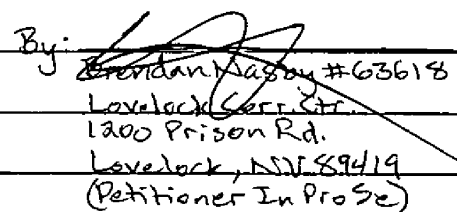 By:
Brendan Nasby #63618
Lovelock Corr. Ctr.
1200 Prison Rd.
Lovelock, NV 89419
(Petitioner In Pro Se)